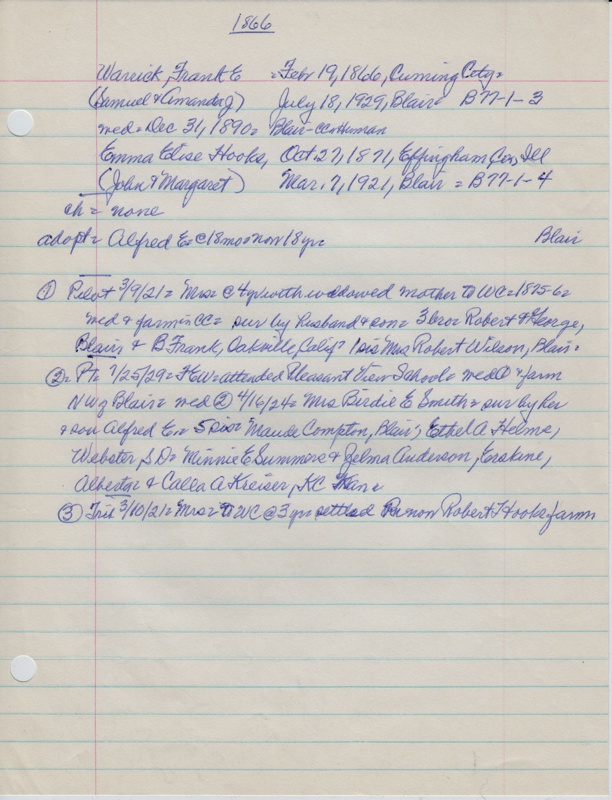 1866
Warrick, Frank E = Feb 19, 1866, Cuming City =
(Samuel & Amanda J) July 18, 1929, Blair = B77-1-3
med = Dec 31, 1890 = Blair-CC
Emma Elise Hooks, Oct 27, 1871, Effingham Co, Ill
(John & Margaret) Mar. 7, 1921, Blair = B77-1-4
ch = none
adopt = Alfred E = @ 18 mo = now 18 yr = Blair
① Pilot 3/9/21 = Mrs = @ 4 yr with widowed mother to WC = 1875-6 =
med & farm in CC = sur by husband & son = 3 bro = Robert & George,
Blair & B. Frank, Oakville, Calif = 1 sis Mrs Robert Wilson, Blair =
② = PT = 7/25/29 = FEW = attended Pleasant View School = med ① & farm
NW of Blair = med ② 4/16/24 = Mrs Birdie E Smith = sur by her
& son Alfred E. = 5 sis = Maude Compton, Blair; Ethel A Helms,
Webster, S D = Minnie E Summers & Zelma Anderson, Erskine,
Alberta & Calla A Kreiser, KC Kan =
③ Trib 3/10/21 = Mrs = to WC @ 3 yr = settled on now Robert T Hooks farm